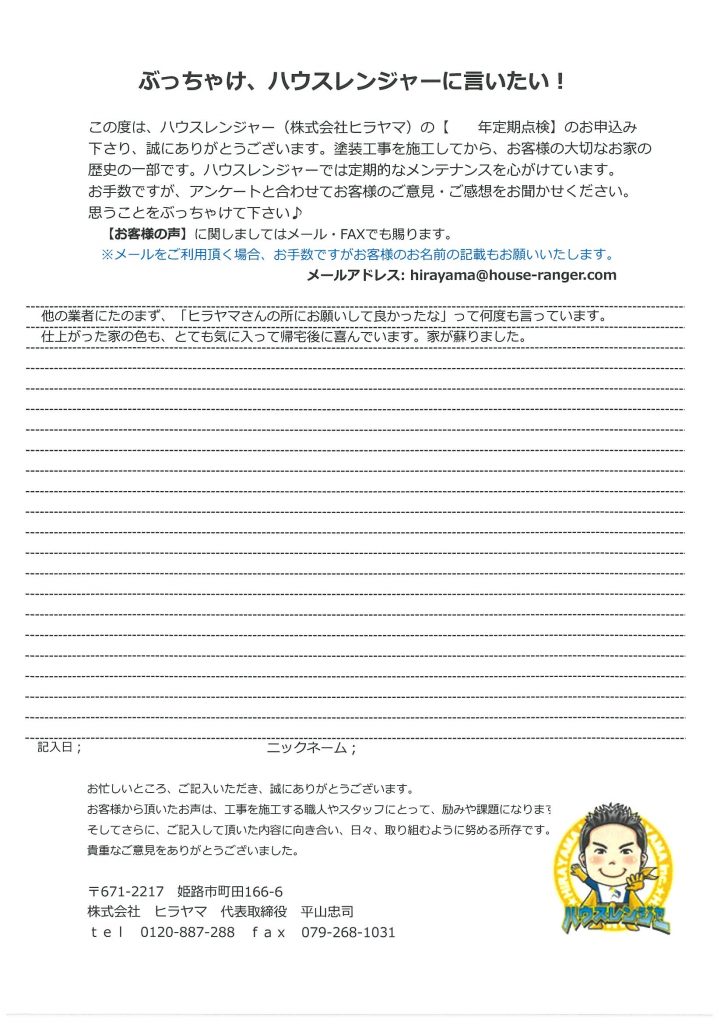 ぶっちゃけ、ハウスレンジャーに言いたい！
この度は、ハウスレンジャー（株式会社ヒラヤマ）の【　　年定期点検】のお申込み
下さり、誠にありがとうございます。塗装工事を施工してから、お客様の大切なお家の
歴史の一部です。ハウスレンジャーでは定期的なメンテナンスを心がけています。
お手数ですが、アンケートと合わせてお客様のご意見・ご感想をお聞かせください。
思うことをぶっちゃけて下さい♪
【お客様の声】に関しましてはメール・FAXでも賜ります。
※メールをご利用頂く場合、お手数ですがお客様のお名前の記載もお願いいたします。
メールアドレス: hirayama@house-ranger.com
他の業者にたのまず、「ヒラヤマさんの所にお願いして良かったな」って何度も言っています。
仕上がった家の色も、とても気に入って帰宅後に喜んでいます。家が蘇りました。
記入日；　　ニックネーム；
お忙しいところ、ご記入いただき、誠にありがとうございます。
お客様から頂いたお声は、工事を施工する職人やスタッフにとって、励みや課題になります
そしてさらに、ご記入して頂いた内容に向き合い、日々、取り組むように努める所存です。
貴重なご意見をありがとうございました。
〒671-2217　姫路市町田166-6
株式会社　ヒラヤマ　代表取締役　平山忠司
ｔｅｌ　0120-887-288　ｆａｘ　079-268-1031
ハウスレンジャー